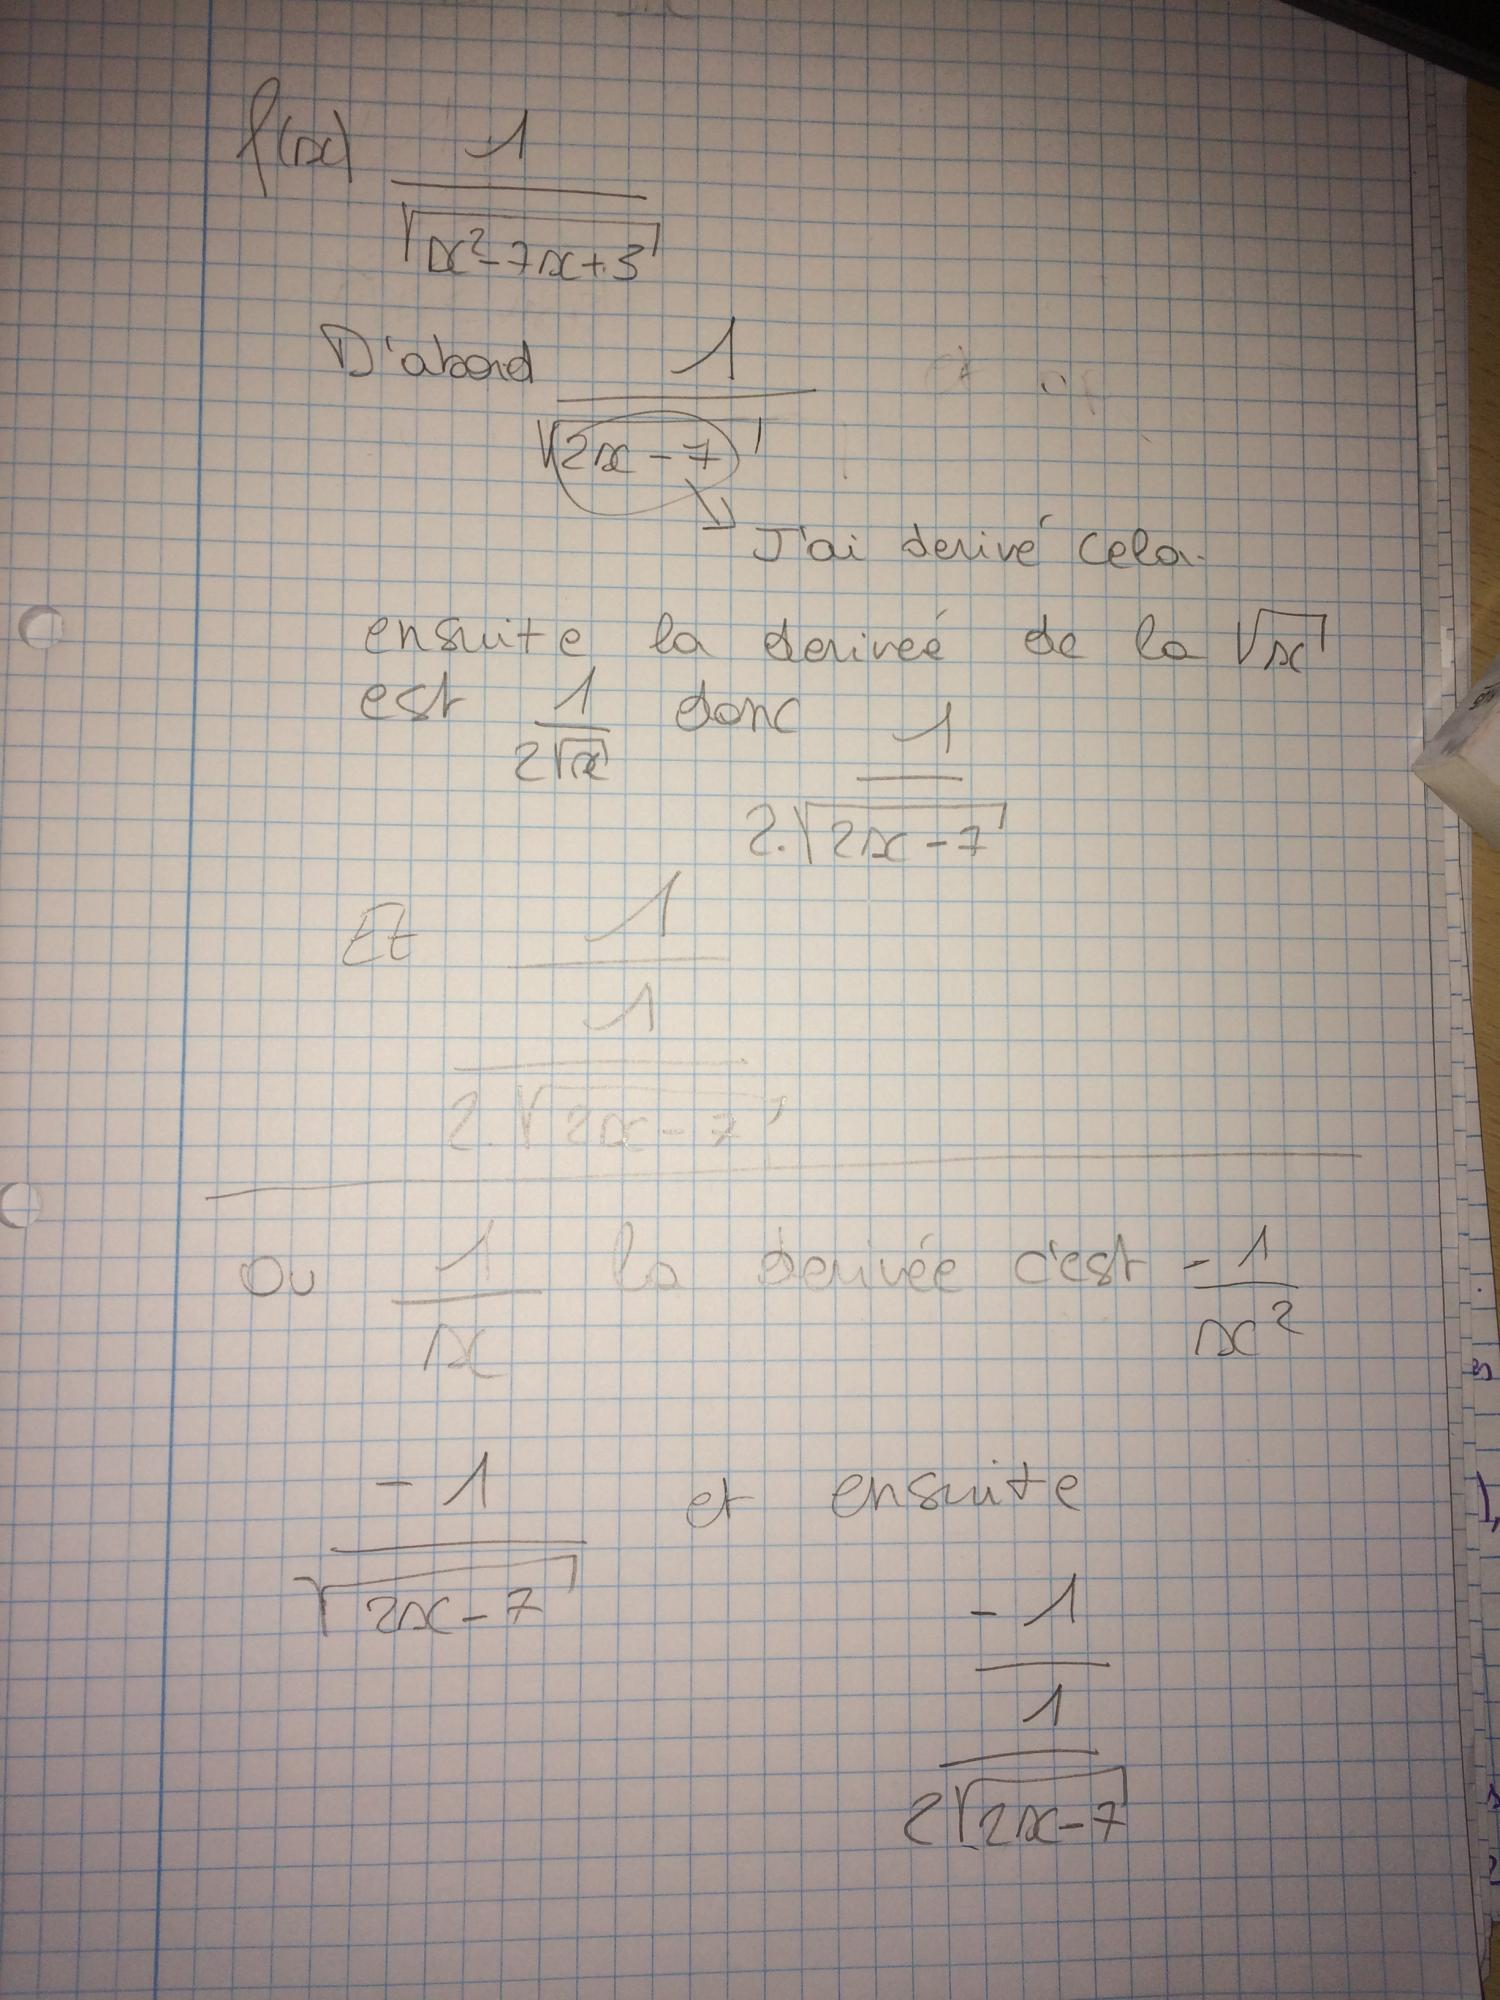 f(x) 1
√x²-7x+3
D'abord 1
√2x-7
J'ai derivé cela.
ensuite la deriveé de la √x
est 1/2√x donc 1
2.√2x-7
Et 1
1
2.√2x-7
Ou 1/x la derivée c'est -1/x²
-1 et ensuite
√2x-7
-1
1
2√2x-7